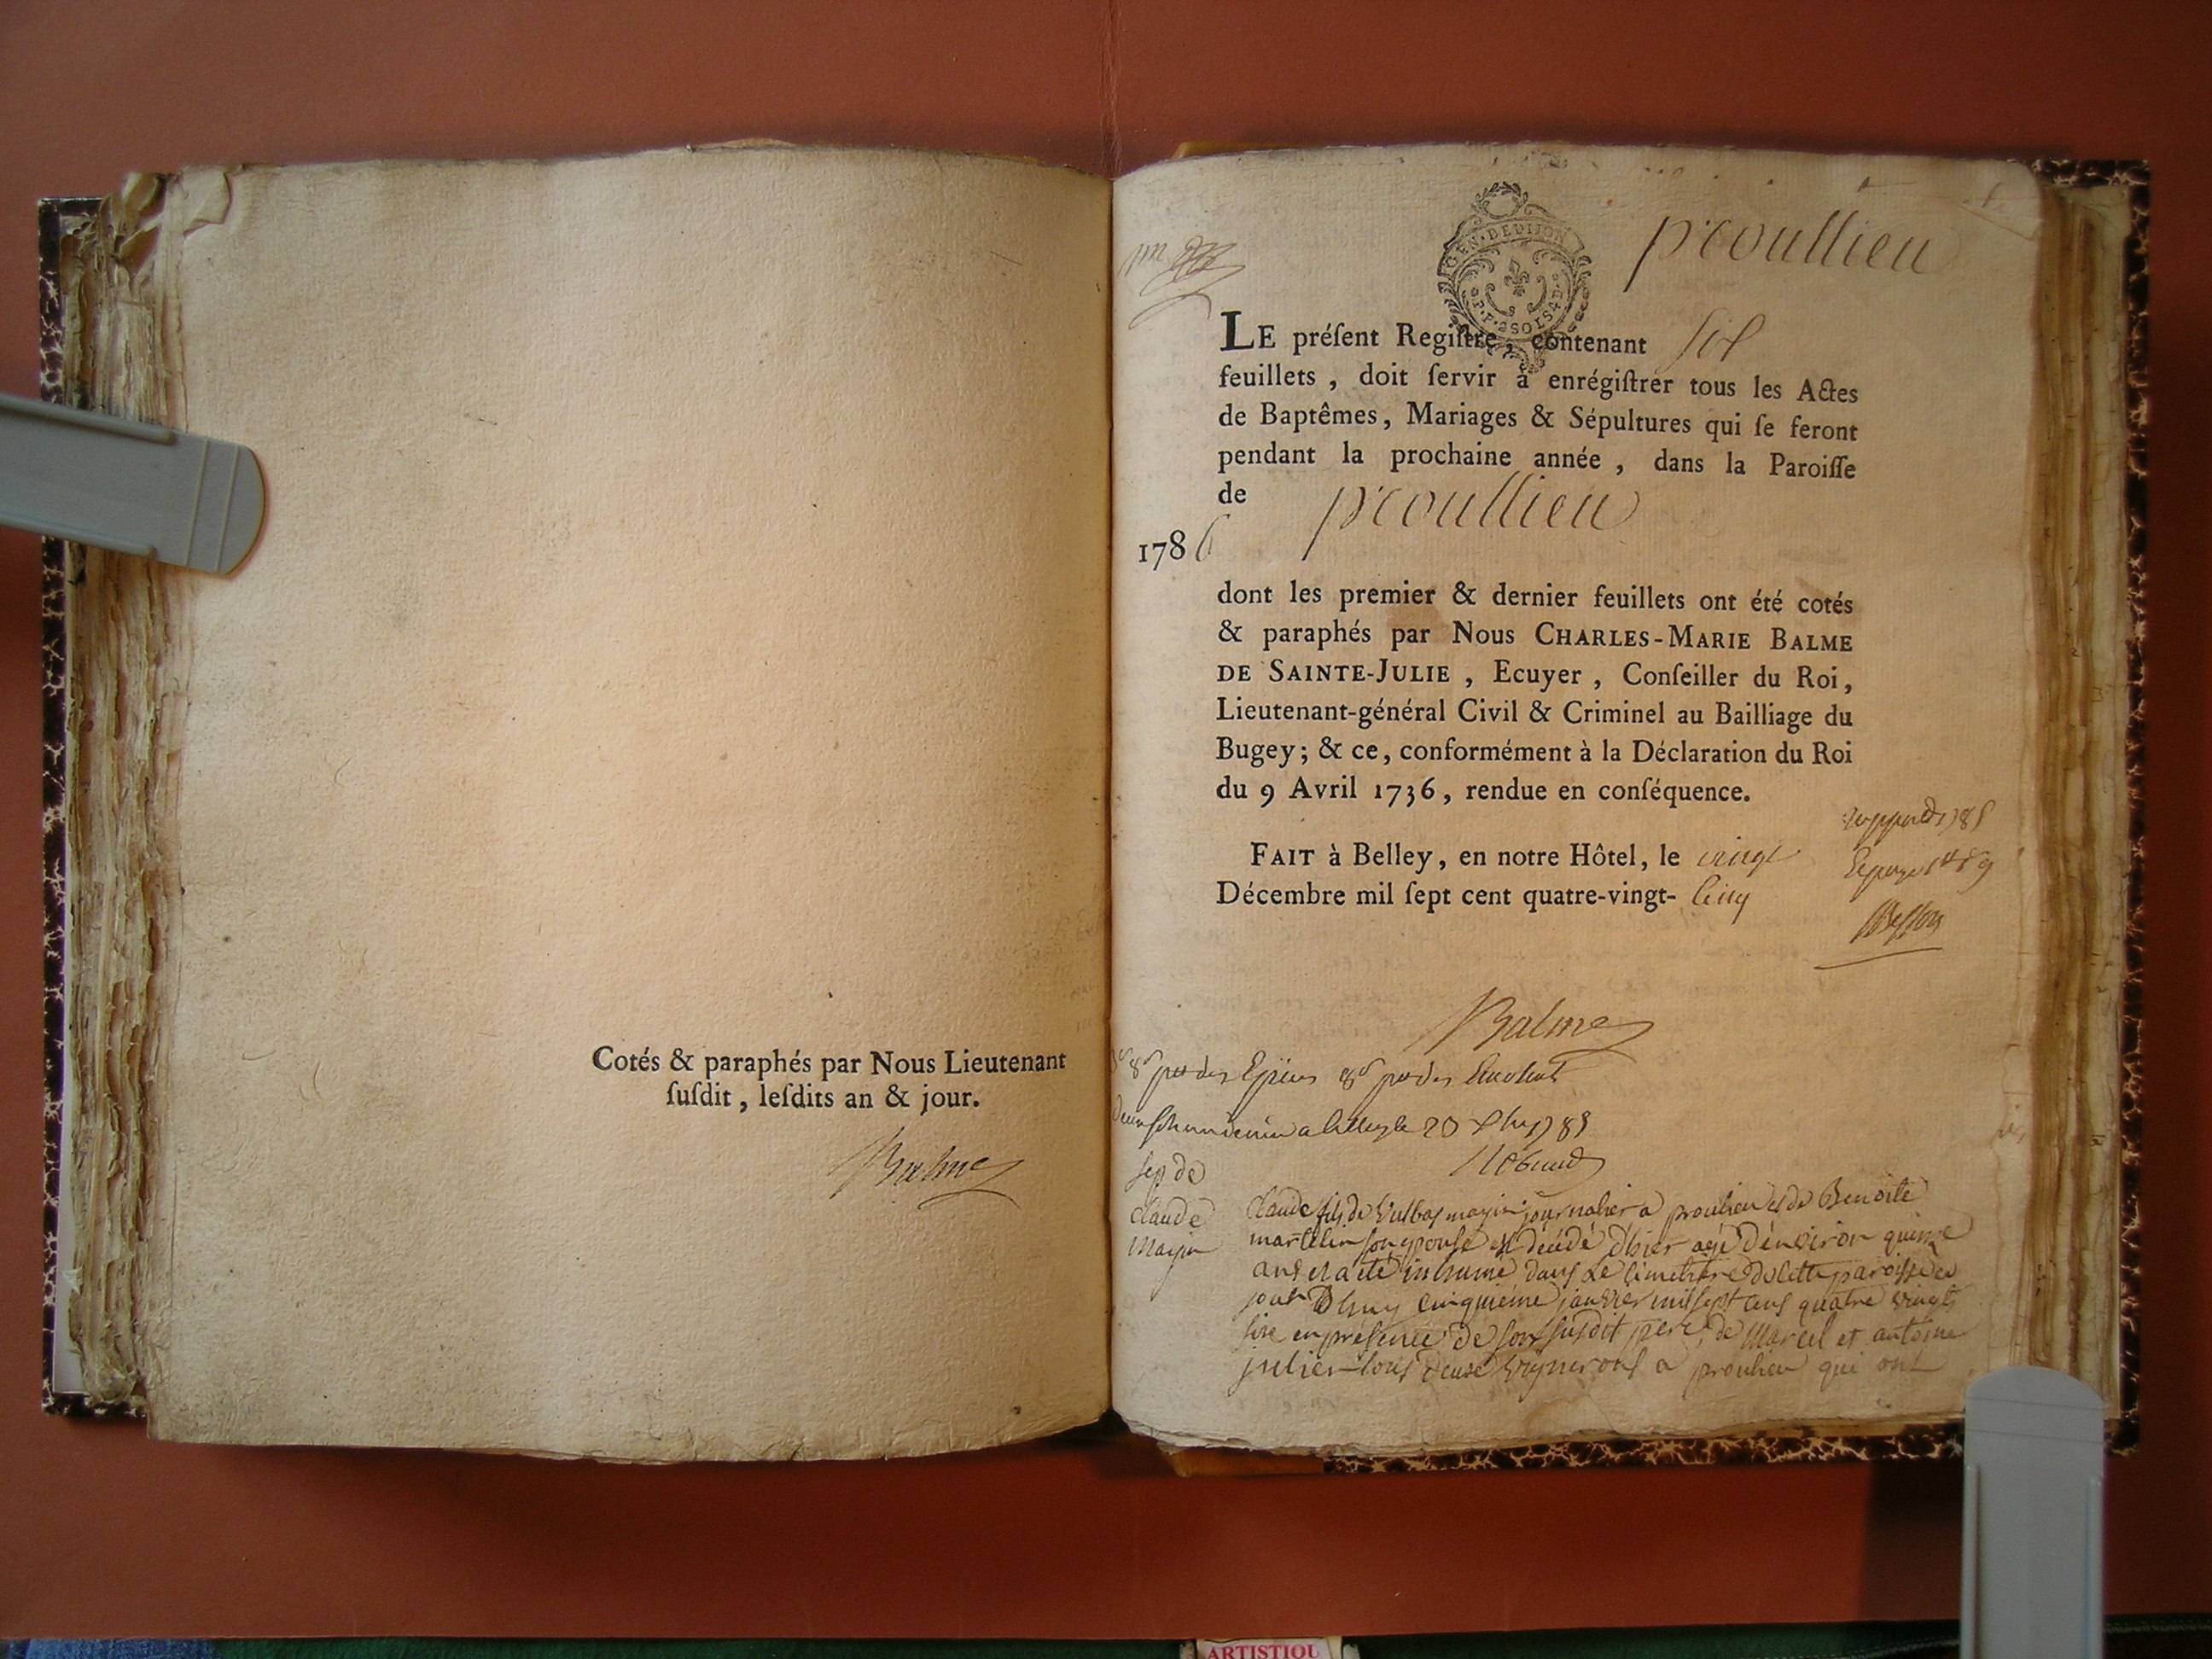 Cotés & paraphés par Nous Lieutenant
ſuſdit, leſdits an & jour.
Balme
GEN·DE DIJON
proullieu
LE préſent Regiſtre, contenant six
feuillets, doit ſervir à enrégiſtrer tous les Actes
de Baptêmes, Mariages & Sépultures qui ſe feront
pendant la prochaine année, dans la Paroiſſe
de proullieu
1786
dont les premier & dernier feuillets ont été cotés
& paraphés par Nous CHARLES-MARIE BALME
DE SAINTE-JULIE, Ecuyer, Conſeiller du Roi,
Lieutenant-général Civil & Criminel au Bailliage du
Bugey; & ce, conformément à la Déclaration du Roi
du 9 Avril 1736, rendue en conſéquence.
FAIT à Belley, en notre Hôtel, le vingt
Décembre mil ſept cent quatre-vingt- cinq
Balme
sep de
claude
mayin
claude fils de Vulbas mayin journalier a proulieu et de Benoite
martelin son epouse est décédé d'hier agé d'environ quinze
ans et a eté inhumé dans le cimetiere de cette paroisse ce
jourdhuy cinquieme janvier mil sept cens quatre vingts
sixe en presence de son susdit pere, de Marcel et antoine
julien tous deux vignerons a proulieu qui ont
ARTISTIQU